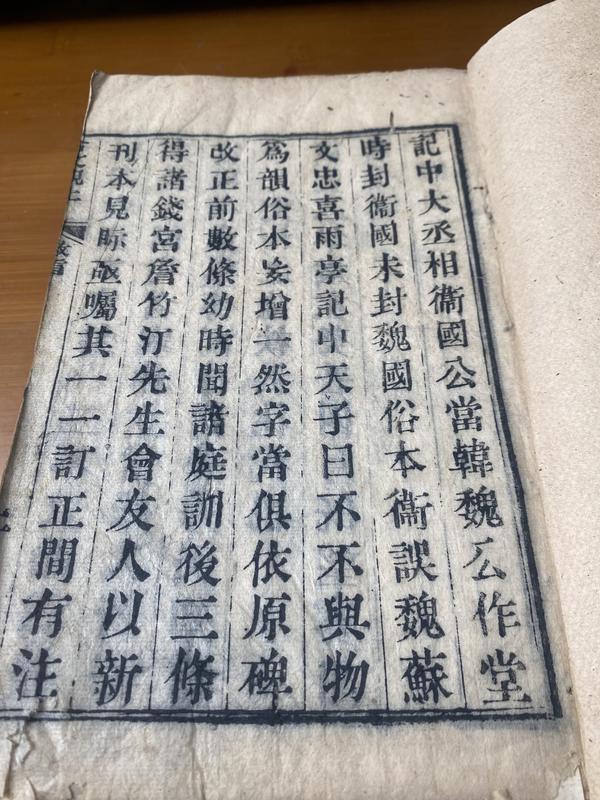 記中大丞相衞國公當韓魏公作堂
時封衞國未封魏國俗本衞誤魏蘇
文忠喜雨亭記中天子曰不不與物
爲韻俗本妄增一然字當俱依原碑
改正前數條幼時聞諸庭訓後三條
得諸錢宮詹竹汀先生會友人以新
刊本見眎亟囑其一一訂正間有注